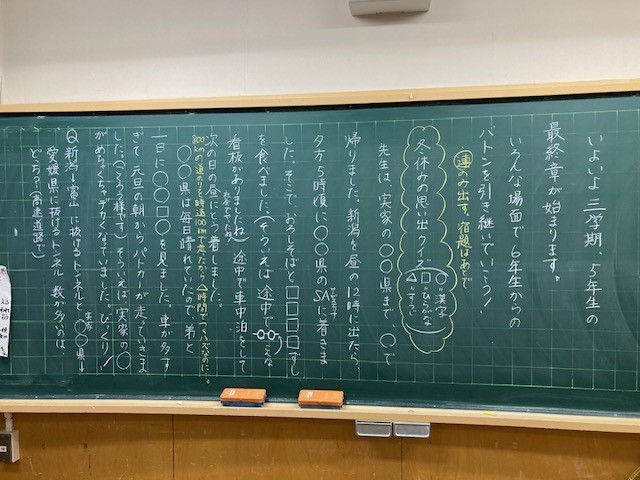 いよいよ三学期、5年生の
最終章が始まります。
いろんな場面で6年生からの
バトンを引き継いでいこう!
連のみ出す、宿題はあとで
冬休みの思い出クイズ
○…漢字
□…ひらがな
△…すうじ
先生は、実家の○○県まで、○で
帰りました。新潟を昼の12時に出たら、
夕方5時頃に○○県のSAに着きま
した。そこで、おろしそばと□□□□ずし
を食べました。(そういえば途中で
看板がありましたね)途中で車中泊をして
次の日の昼にとう着しました。
800kmの道のりを時速100kmで走ったから、△時間でつくハズなのに…
○○県は毎日晴れていたので、弟と
一日に○○□○を見ました。車が多す
ぎて、元旦の朝からパーカーが走っていきま
した。(ごくろう様です)そういえば、実家の○○
がめちゃくちゃデカくなっていました。びっくり!
Q 新潟〜富山に抜けるトンネルと、○○県〜
実家
愛媛県に抜けるトンネル 数が多いのは、
どっち?(高速道路で)